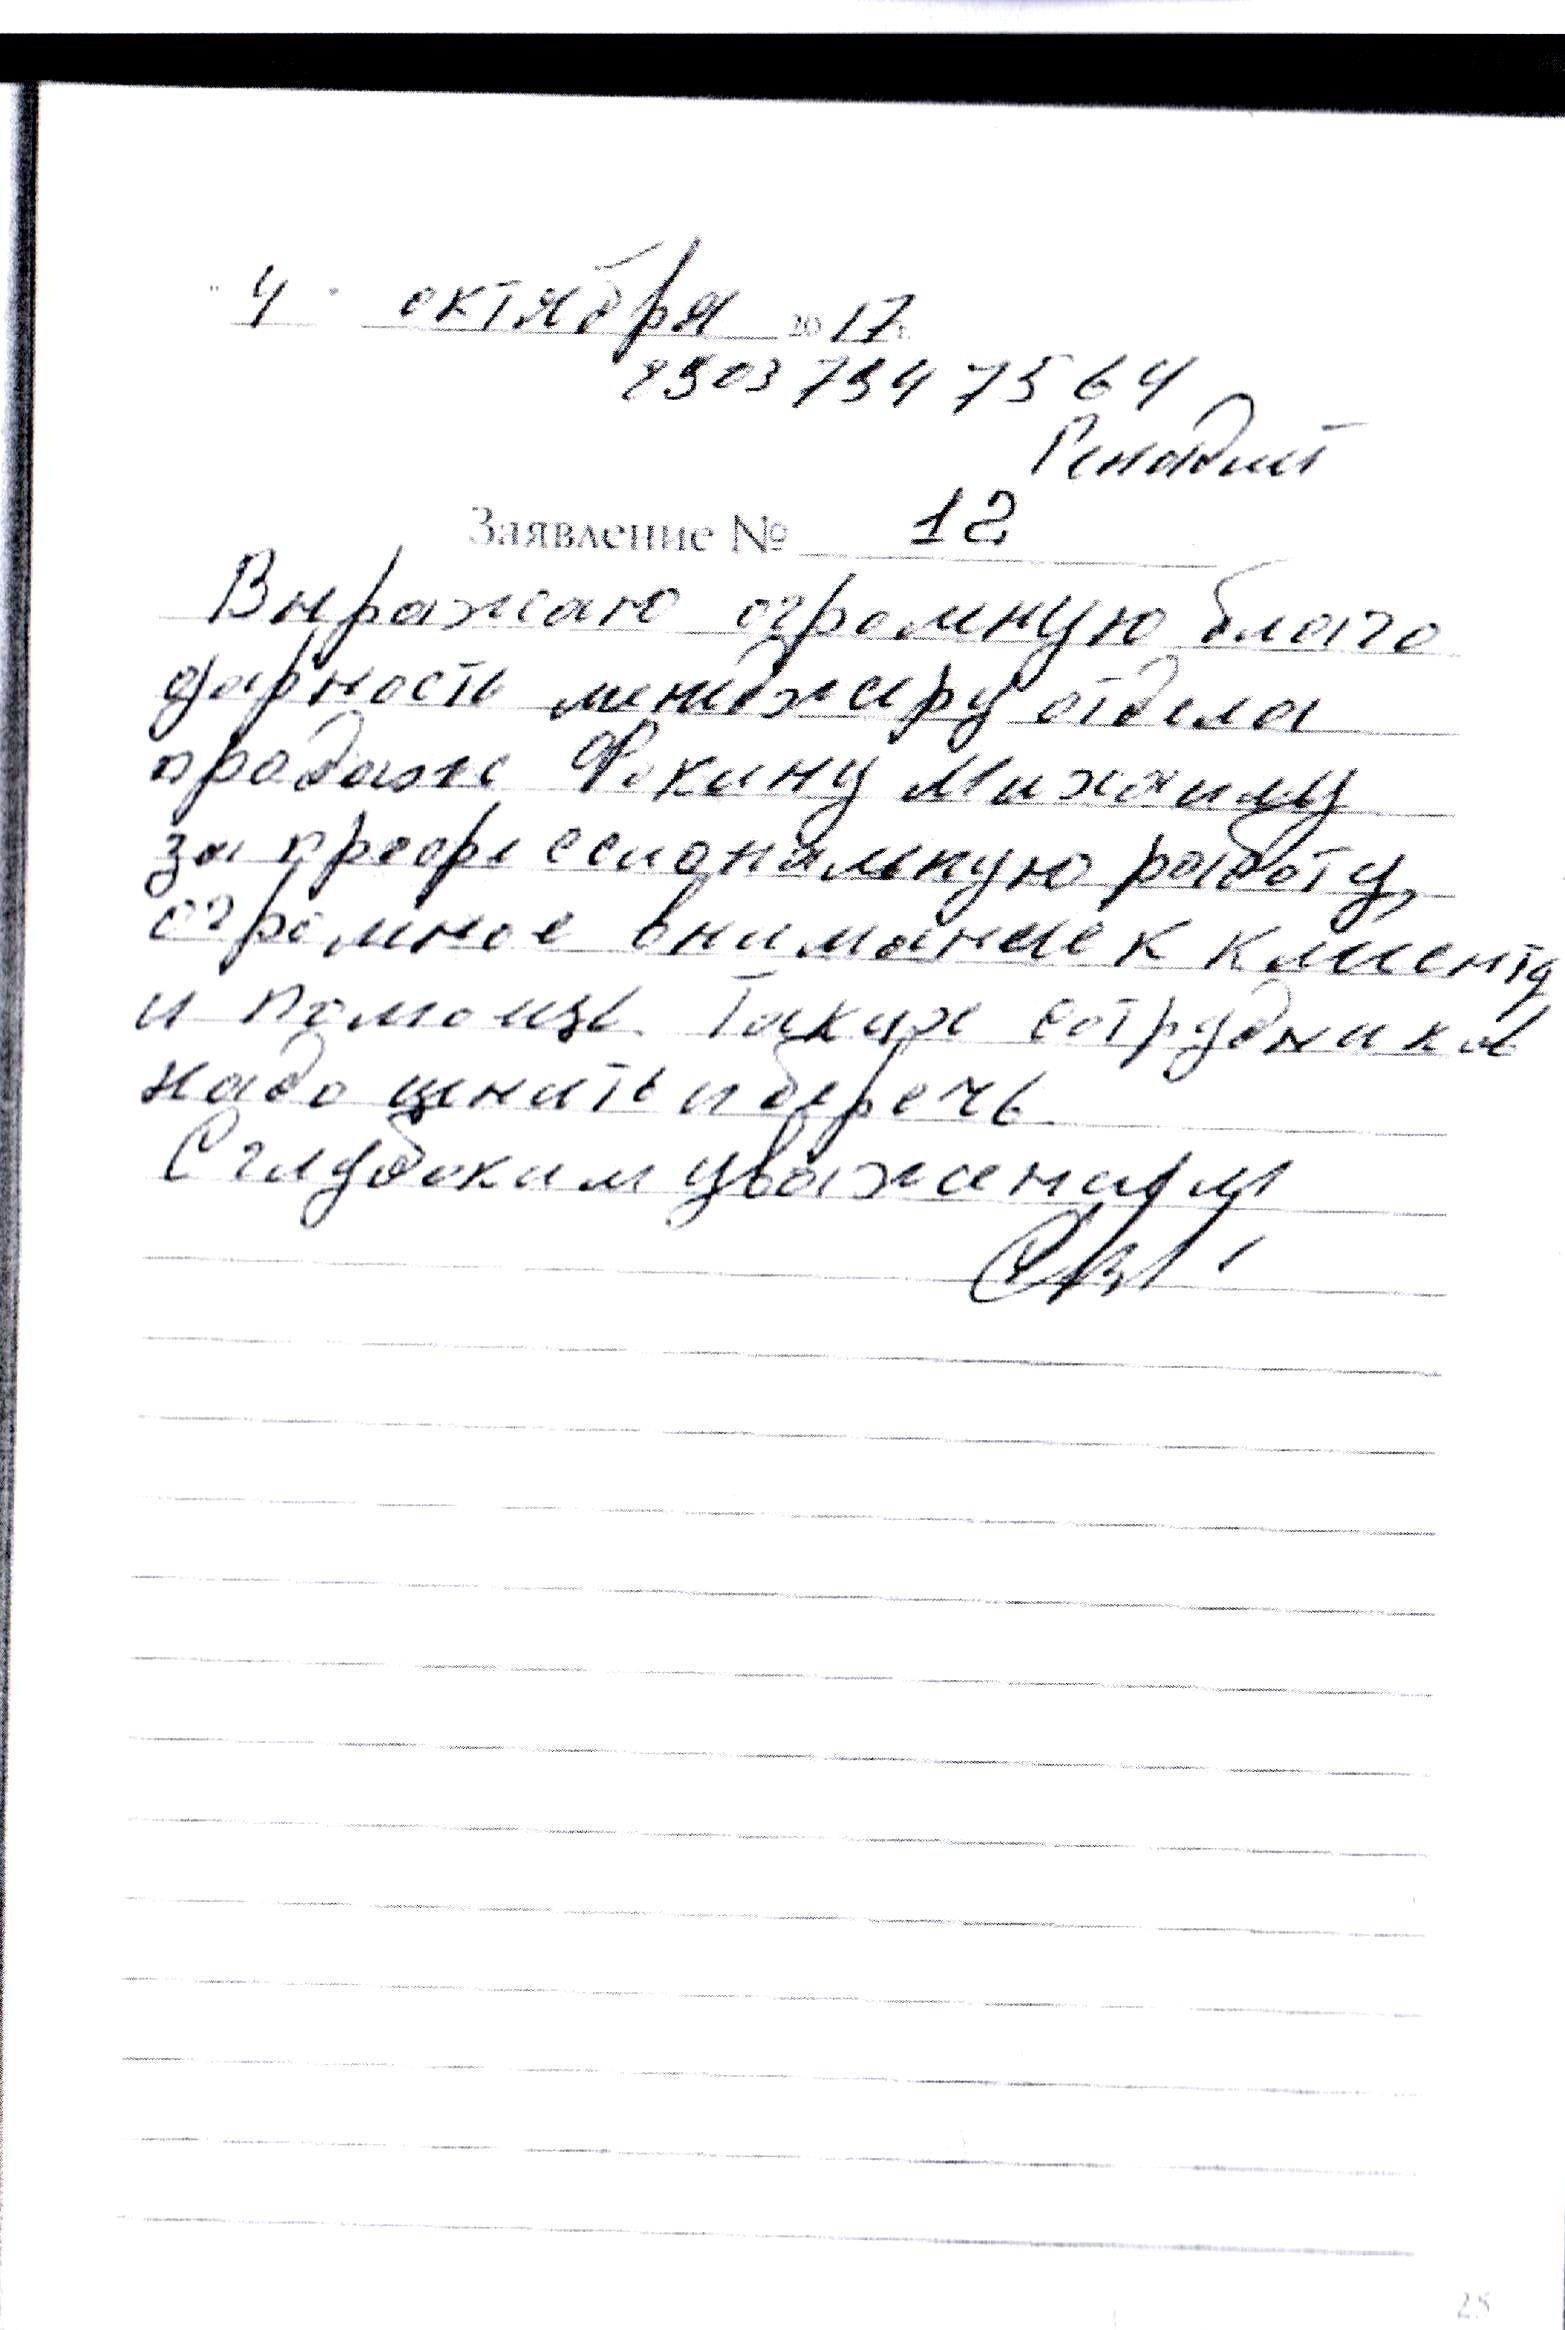 " 4 " октября 2017 г.
8903 794 75 64
Генадий
Заявление № 12
Выражаю огромную благо
дарность менеджеру отдела
продаж Фокину Михаилу
за профессиональную работу,
огромное внимание к клиенту
и помощь. Таких сотрудников
надо ценить и беречь
С глубоким уважением
25